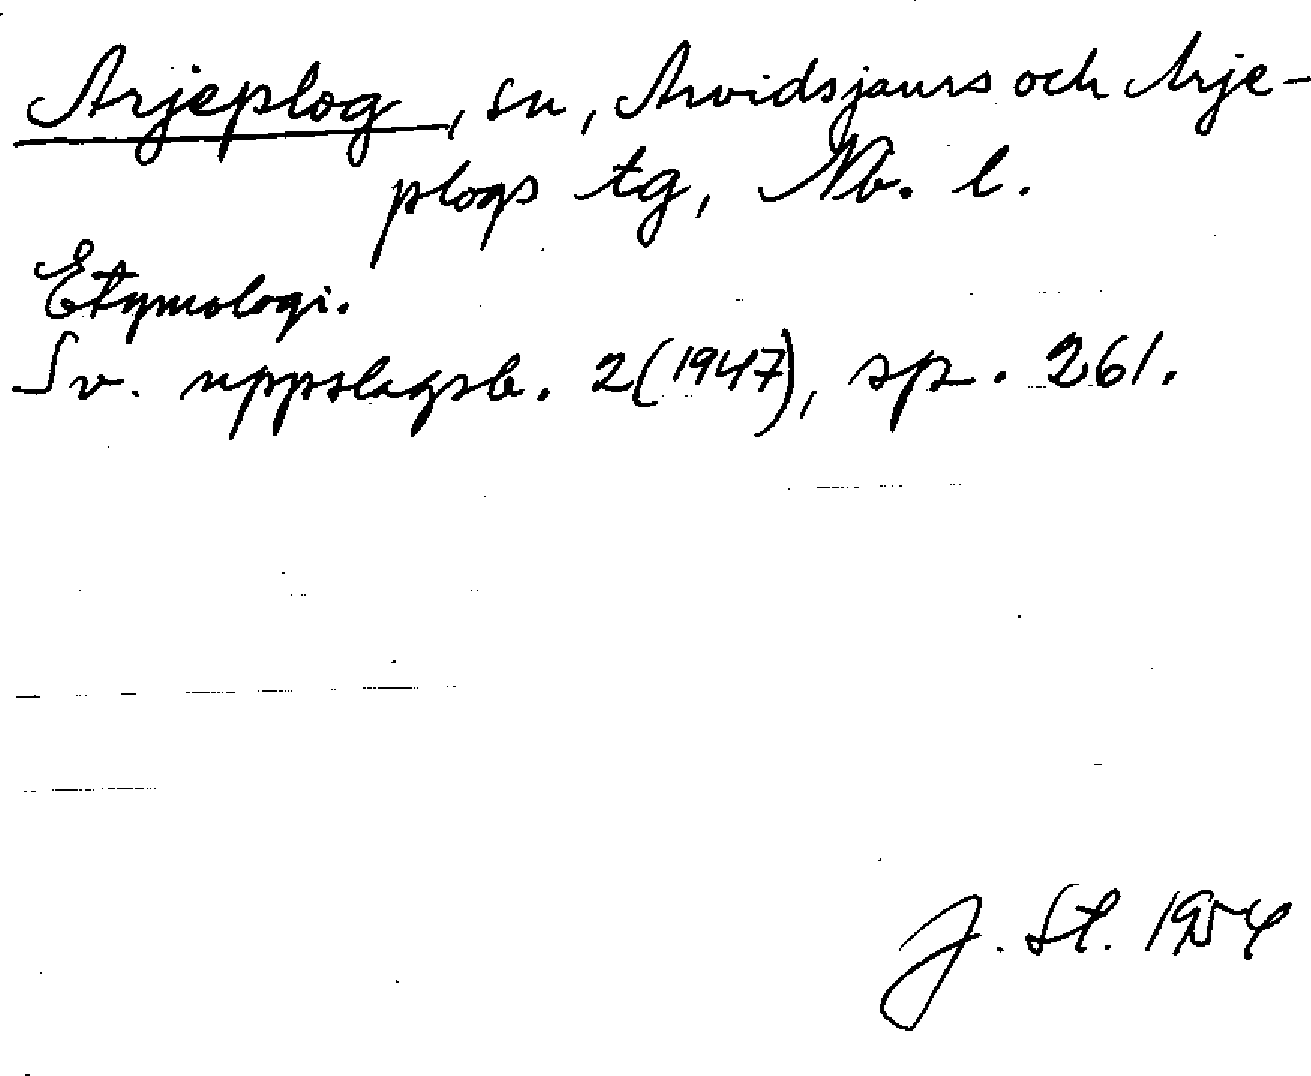 Arjeplog, sn, Arvidsjaurs och Arje-
plogs tg, Nb. l.
Etymologi.
Sv. uppslagsb. 2(1947), sp. 261.
J. St. 1954